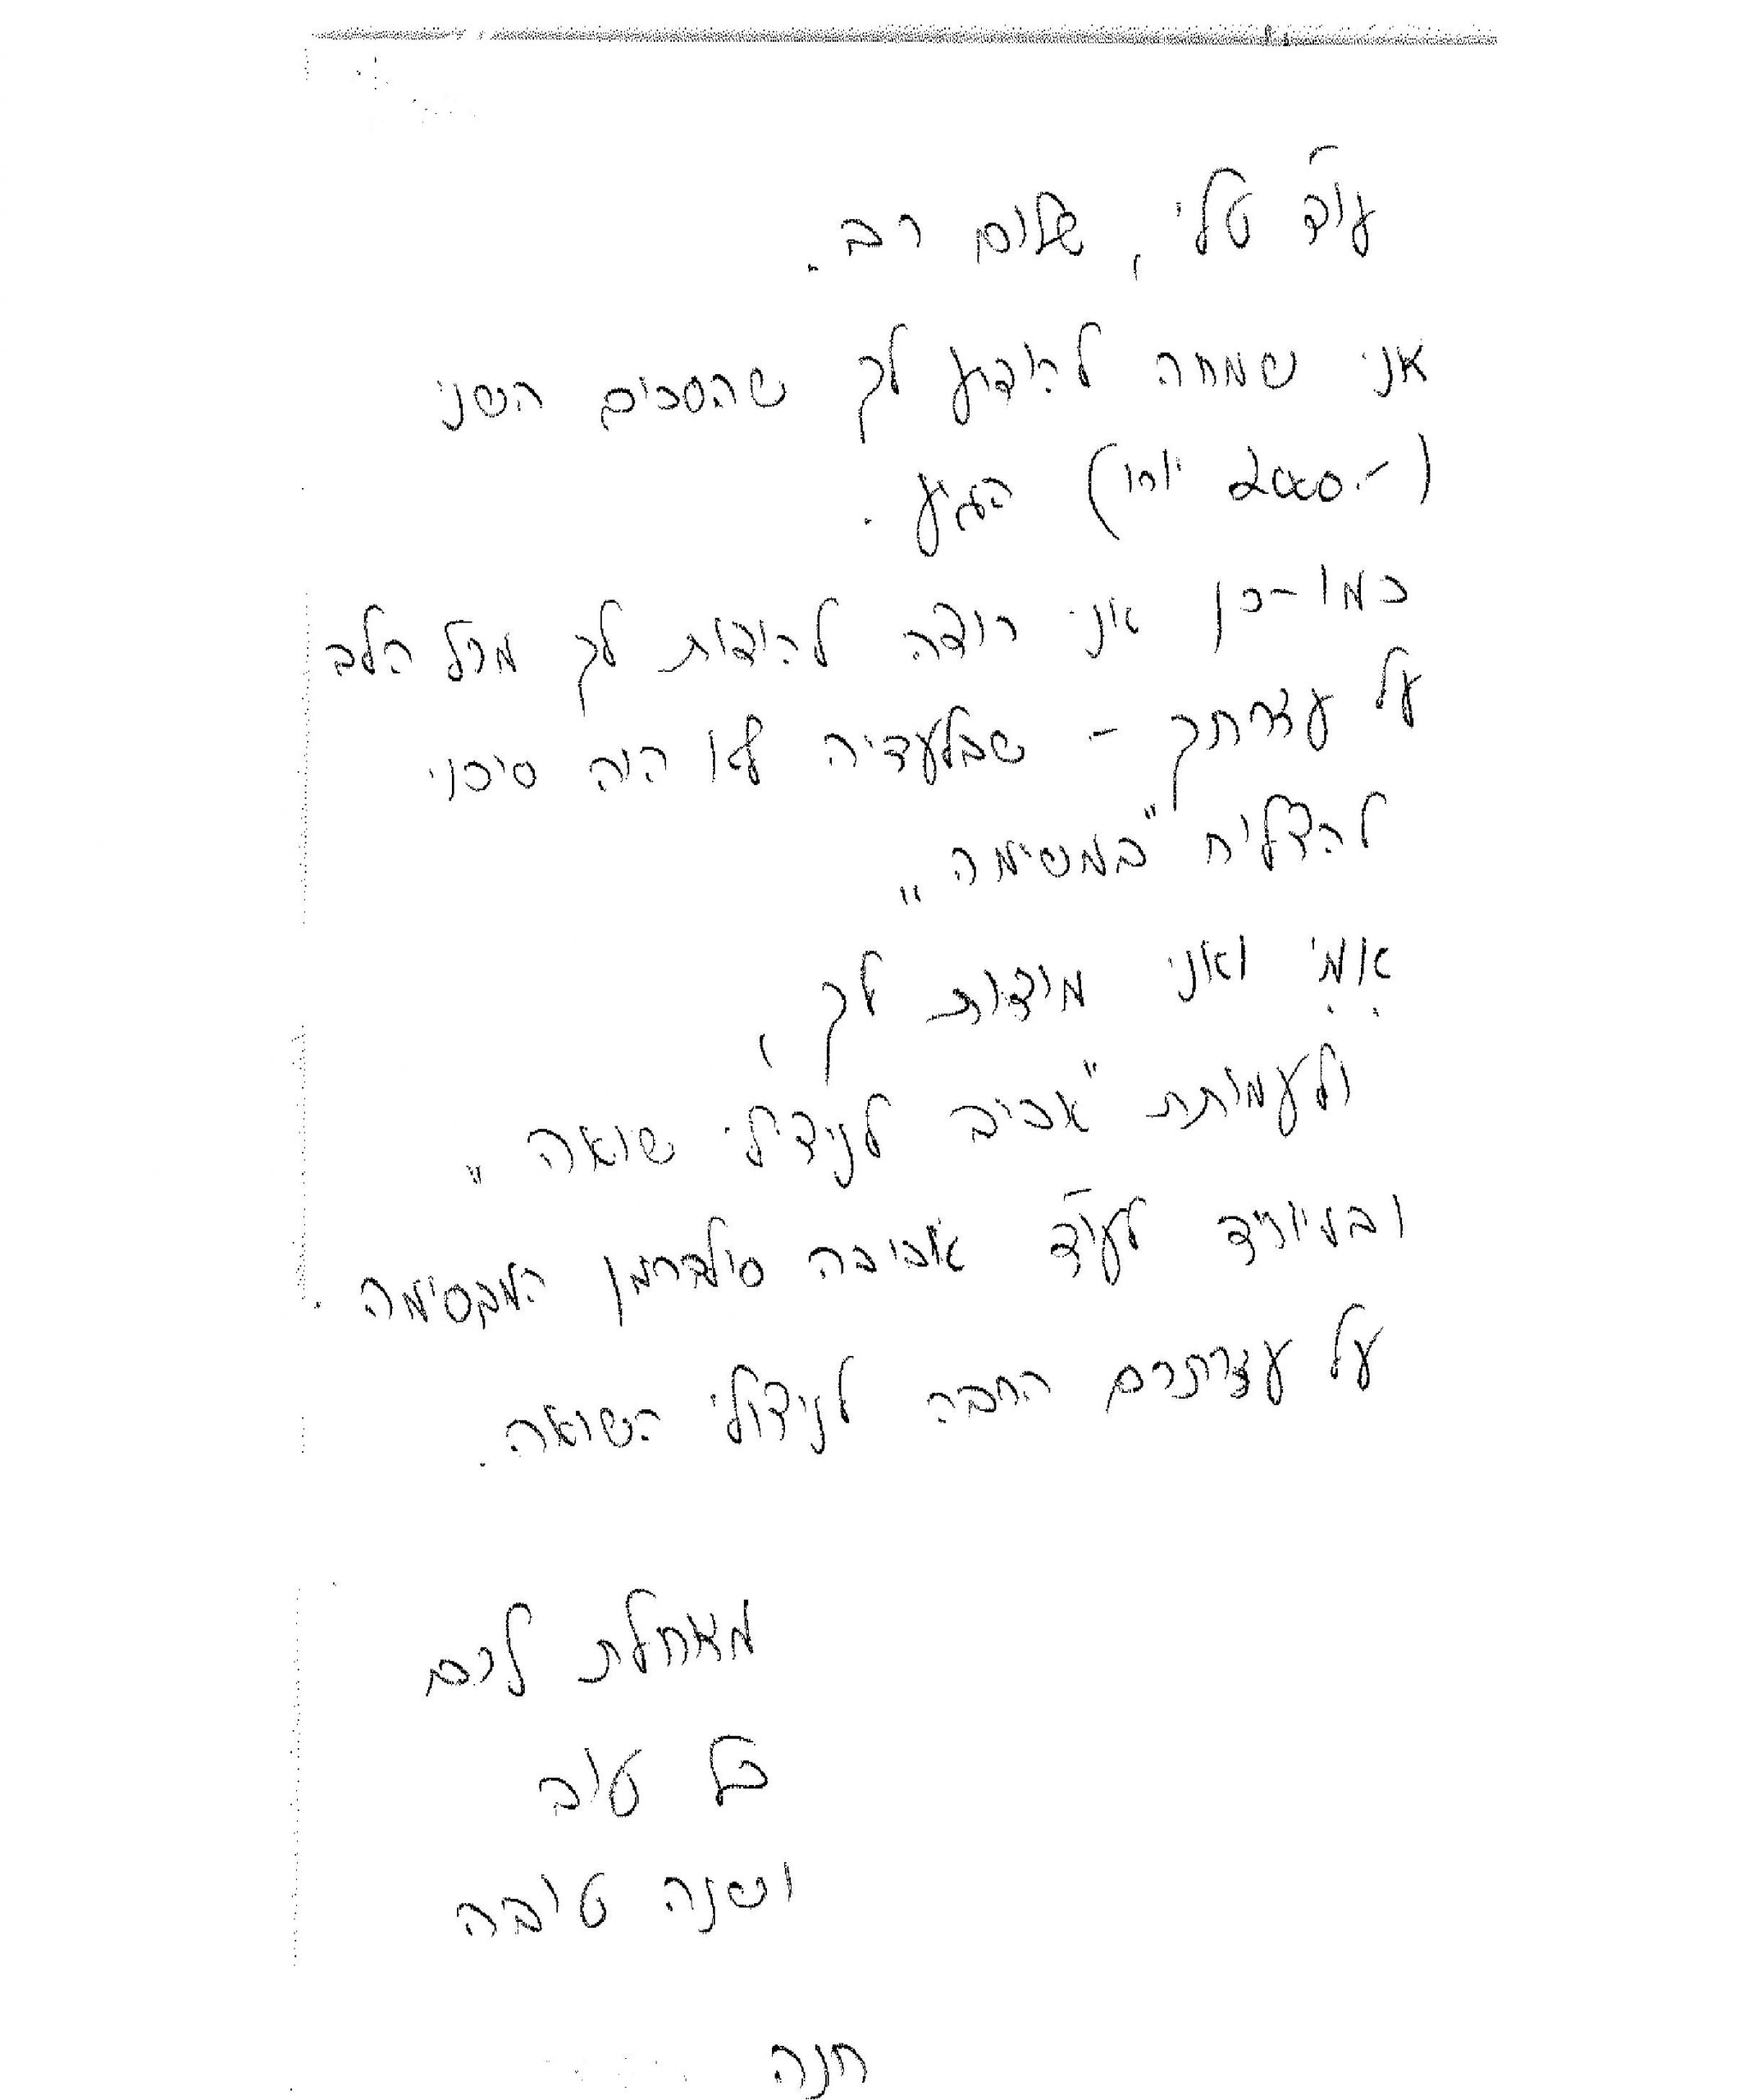 עו"ד טלי, שלום רב.
אני שמחה להודיע לך שהסכום השני
(2000.- יורו) הגיע.
כמו-כן אני רוצה להודות לך מכל הלב
על עזרתך - שבלעדיה לא היה סיכוי
להצליח "במשימה"
אִמִי ואני מודות לך,
ולעמותת "אביב לניצולי שואה"
ובמיוחד לעו"ד אביבה סילברמן המקסימה.
על עזרתכם הרבה לניצולי השואה.
מאחלת לכם
כל טוב
ושנה טובה
חנה